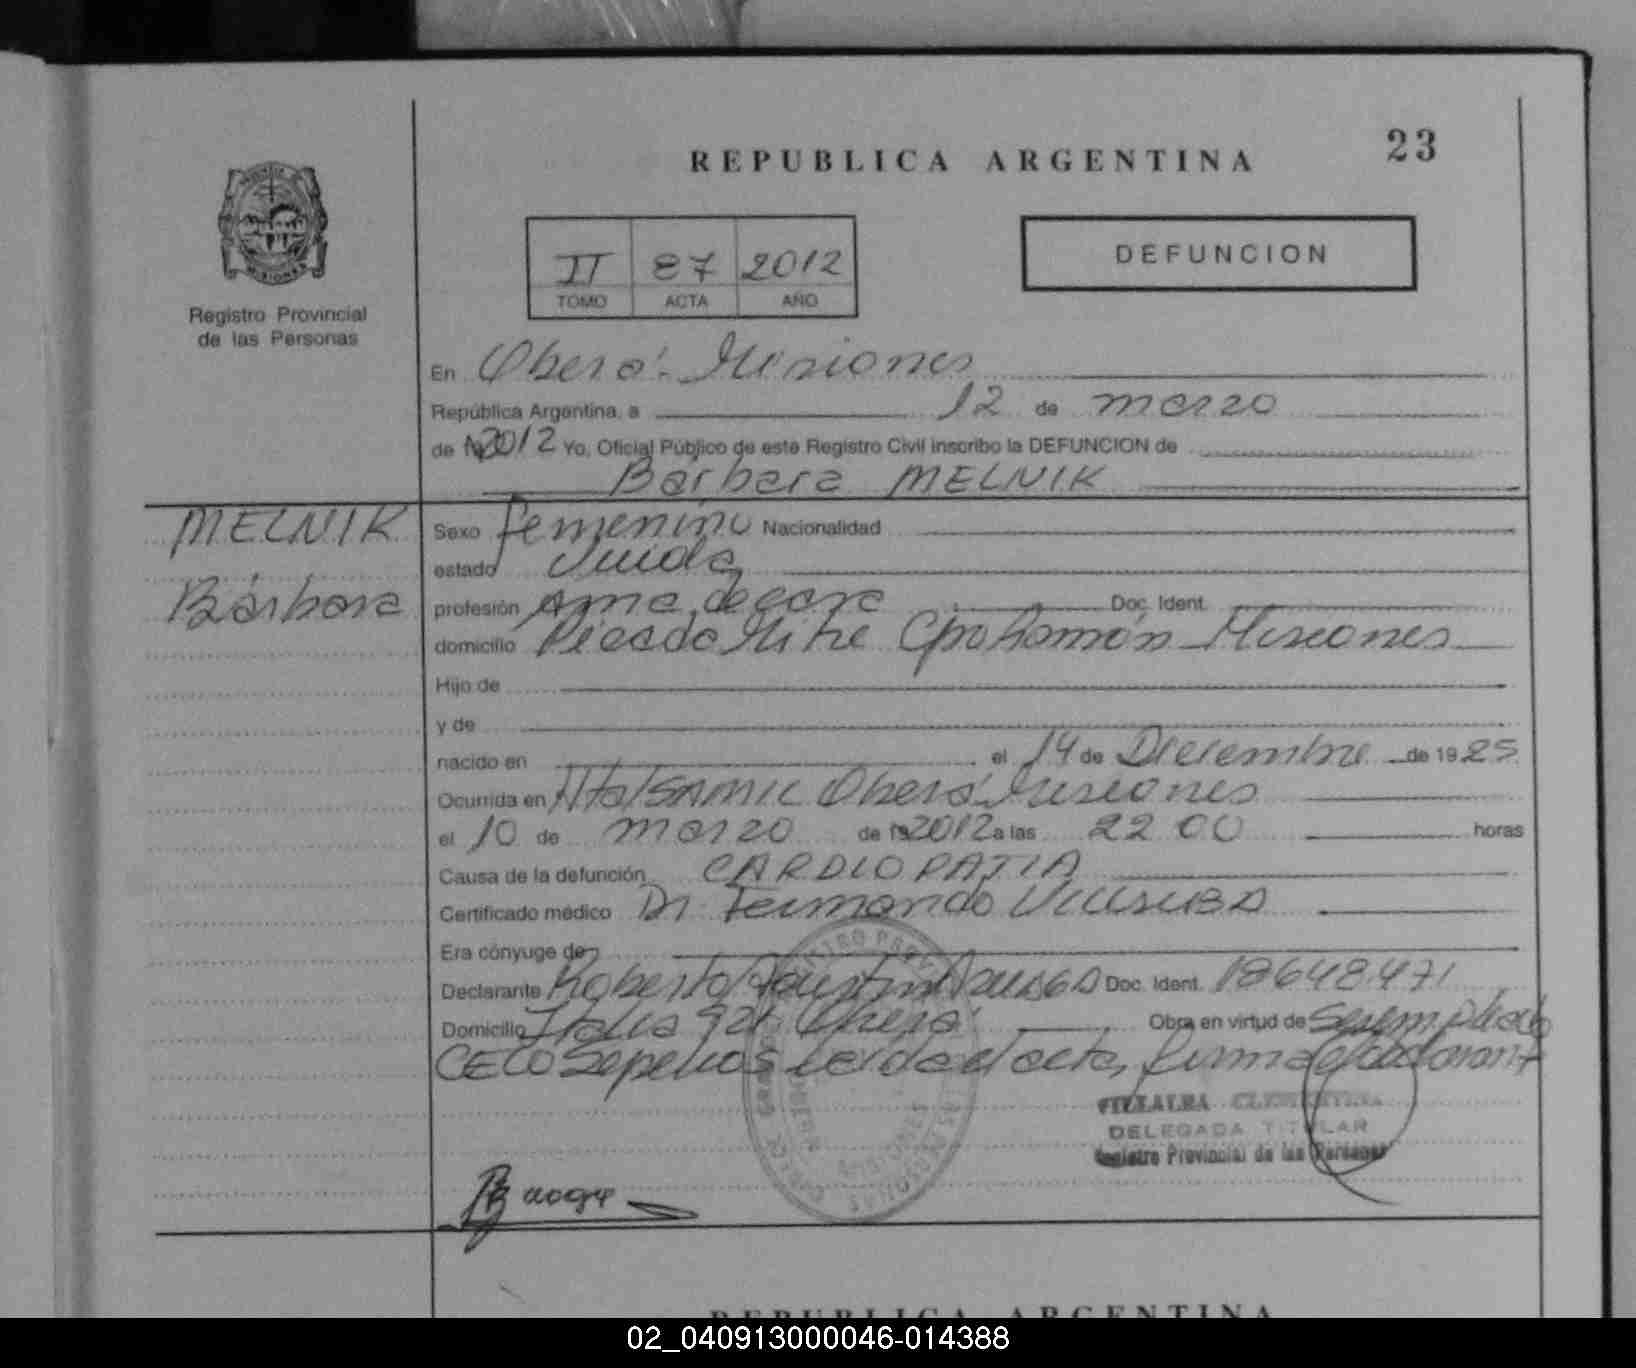 REPUBLICA ARGENTINA
23
II 87 2012
TOMO ACTA AÑO
DEFUNCION
MISIONES
Registro Provincial
de las Personas
En Oberá - Misiones
República Argentina, a 12 de marzo
de 19 2012 Yo, Oficial Público de este Registro Civil inscribo la DEFUNCION de
Bárbara MELNIK
MELNIK
Bárbara
Sexo Femenino Nacionalidad
estado Viuda
profesión Ama de casa Doc. Ident.
domicilio Picada Mitre Cpo Ramón - Misiones
Hijo de
y de
nacido en el 14 de Diciembre de 1925
Ocurrida en SAMIC Oberá Misiones
el 10 de marzo de 19 2012 a las 22 00 horas
Causa de la defunción CARDIOPATIA
Certificado médico Dr. Fernando
Era cónyuge de
Declarante Roberto Doc. Ident. 18648471
Domicilio Italia Oberá Obra en virtud de ser empleado
CECO Sepelios leida el acta, firma el declarante
VILLALBA CLEMENTINA
DELEGADA TITULAR
Registro Provincial de las Personas
REPUBLICA ARGENTINA
02_040913000046-014388